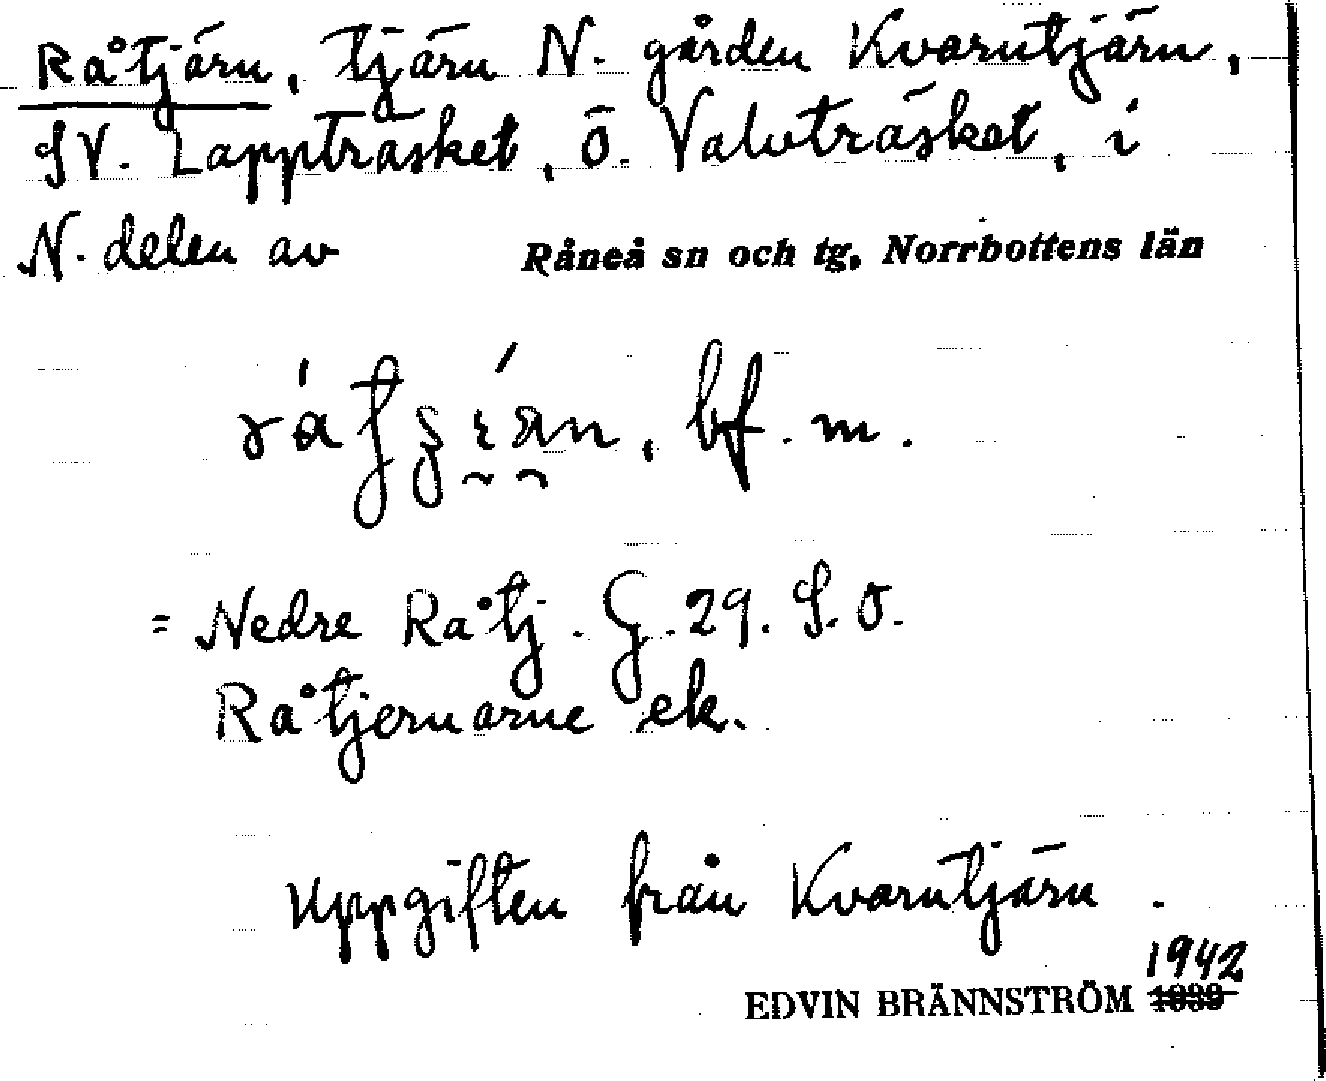 Råtjärn, tjärn N. gården Kvarntjärn,
SV. Lappträsket, Ö. Valvträsket, i
N. delen av Råneå sn och tg, Norrbottens län
bf. m.
= Nedre Råtj. G. 29. S.O.
Råtjernarne ek.
Uppgiften från Kvarntjärn.
1942
EDVIN BRÄNNSTRÖM 1939